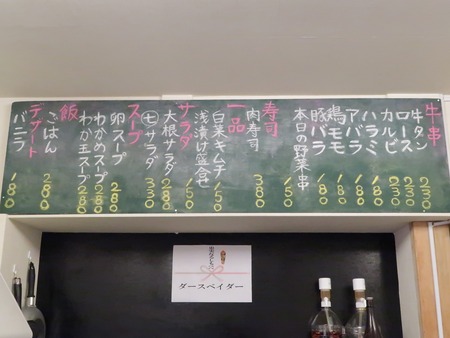 牛串
牛タン 250
ロース 250
カルビ 230
ハラミ 180
アバラ 180
鶏モモ 180
豚バラ 180
本日の野菜串 250
寿司
肉寿司 380
一品
白菜キムチ 150
浅漬け盛合せ 150
サラダ
大根サラダ 280
㊆サラダ 350
スープ
卵スープ 280
わかめスープ 280
わか玉スープ 280
飯
ごはん 280
デザート
バニラ 180
ダースベイダー